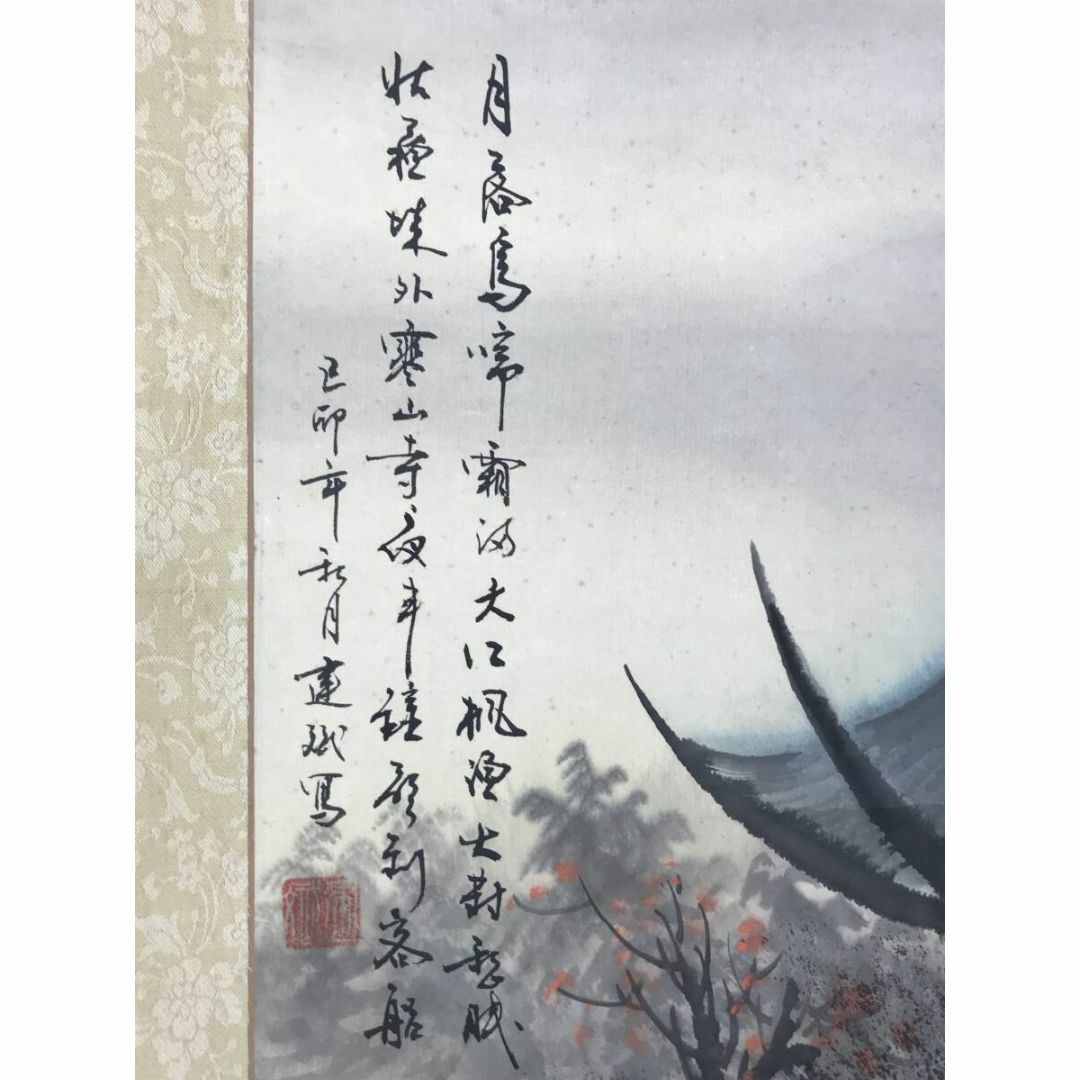 月落烏啼霜滿天江楓漁火對愁眠
姑蘇城外寒山寺夜半鐘聲到客船
己卯年秋月建斌寫